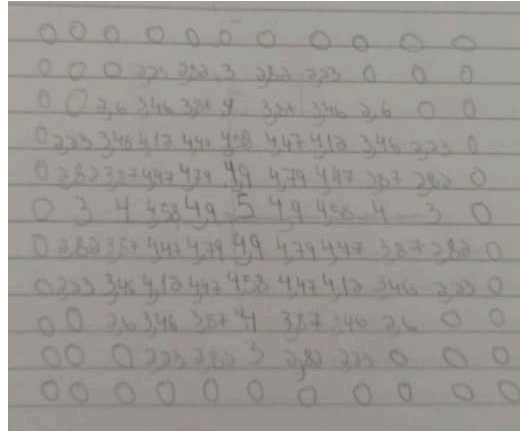 0 0 0 0 0 0 0 0 0 0 0
0 0 0 2,23 2,82 3 2,82 2,23 0 0 0
0 0 2,6 3,46 3,87 4 3,87 3,46 2,6 0 0
0 2,23 3,46 4,12 4,47 4,58 4,47 4,12 3,46 2,23 0
0 2,82 3,87 4,47 4,79 4,9 4,79 4,47 3,87 2,82 0
0 3 4 4,58 4,9 5 4,9 4,58 4 3 0
0 2,82 3,87 4,47 4,79 4,9 4,79 4,47 3,87 2,82 0
0 2,23 3,46 4,12 4,47 4,58 4,47 4,12 3,46 2,23 0
0 0 2,6 3,46 3,87 4 3,87 3,46 2,6 0 0
0 0 0 2,23 2,82 3 2,82 2,23 0 0 0
0 0 0 0 0 0 0 0 0 0 0